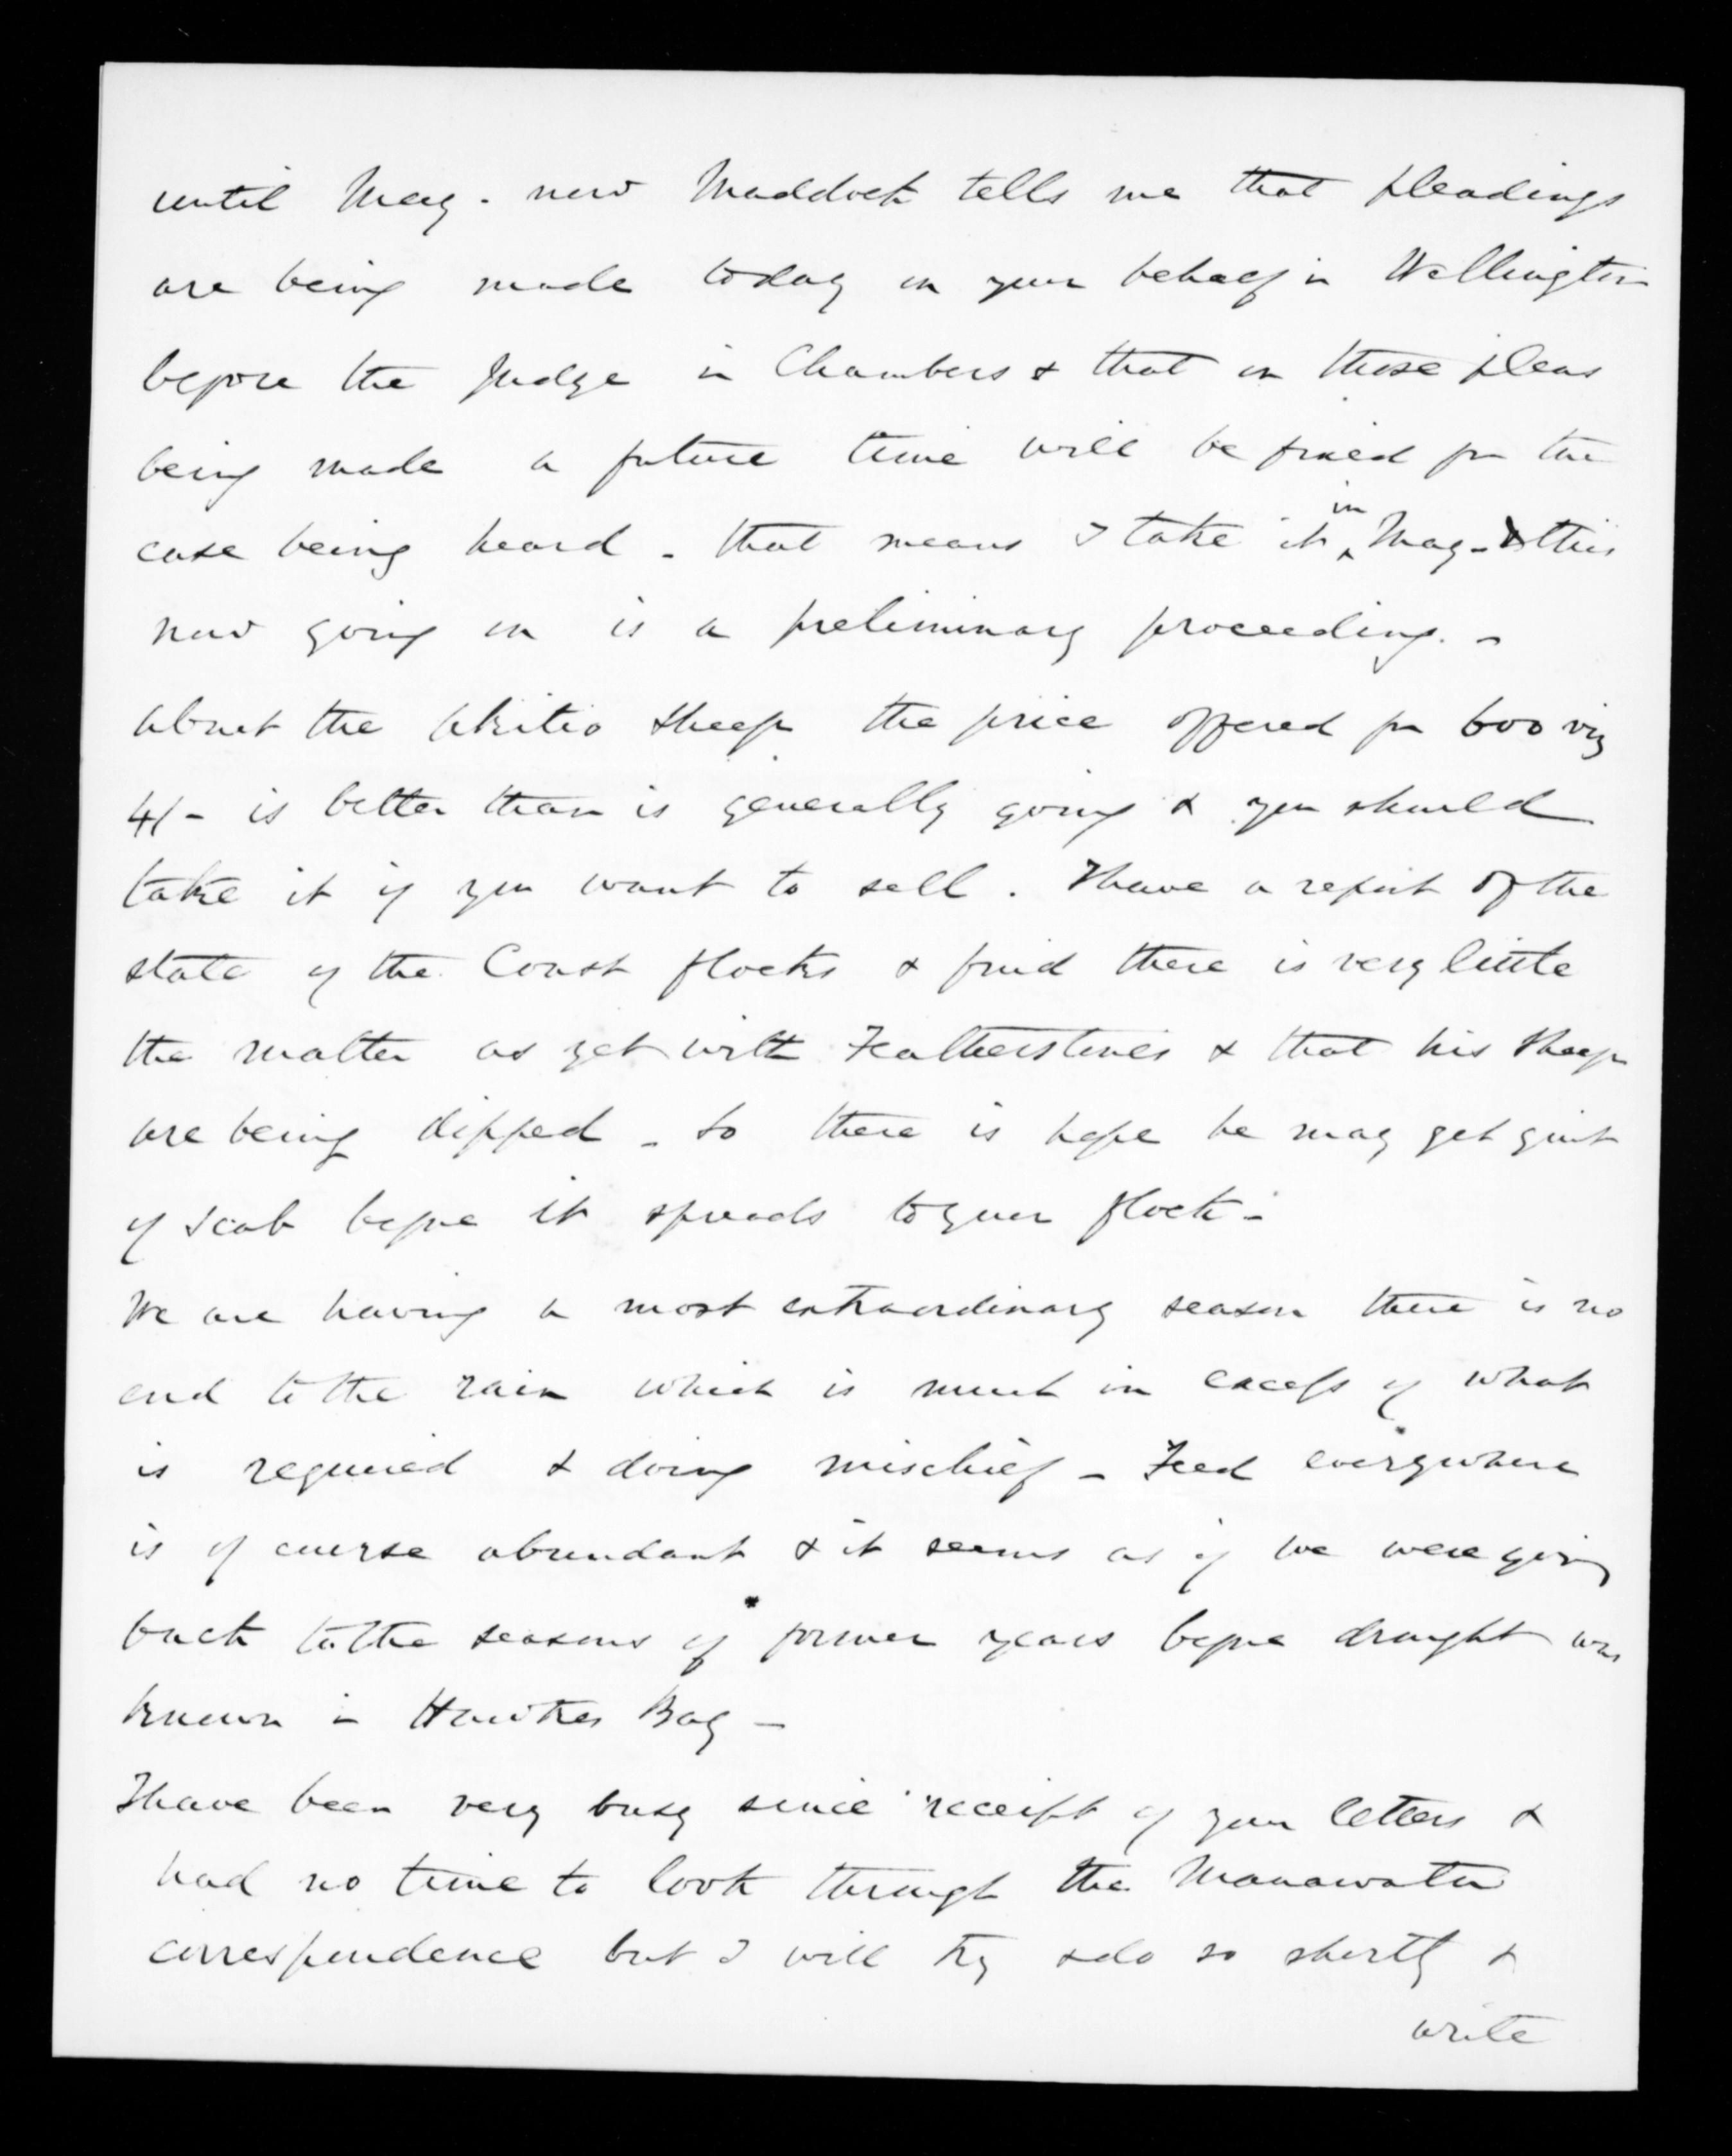 until May. now Maddock tells me that pleadings
are being made today on your behalf in Wellington
before the Judge in Chambers & that on these pleas
being made a future time will be fixed for the
case being heard - that means I take it in May - & this
now going on is a preliminary proceeding. -
About the Akitio sheep the price offered for 600 viz
4/- is better than is generally going & you should
take it if you want to sell. I have a report of the
state of the Coast flocks & find there is very little
the matter as yet with Featherstones & that his sheep
are being dipped - so there is hope he may get quit
of scab before it spreads to your flock -
We are having a most extraordinary season there is no
end to the rain which is much in excess of what
is required & doing mischief - Feed everywhere
is of course abundant & it seems as if we were going
back to the seasons of former years before drought was
known in Hawkes Bay -
I have been very busy since receipt of your letters &
had no time to look through the Manawatu
correspondence but I will try & do so shortly &
write